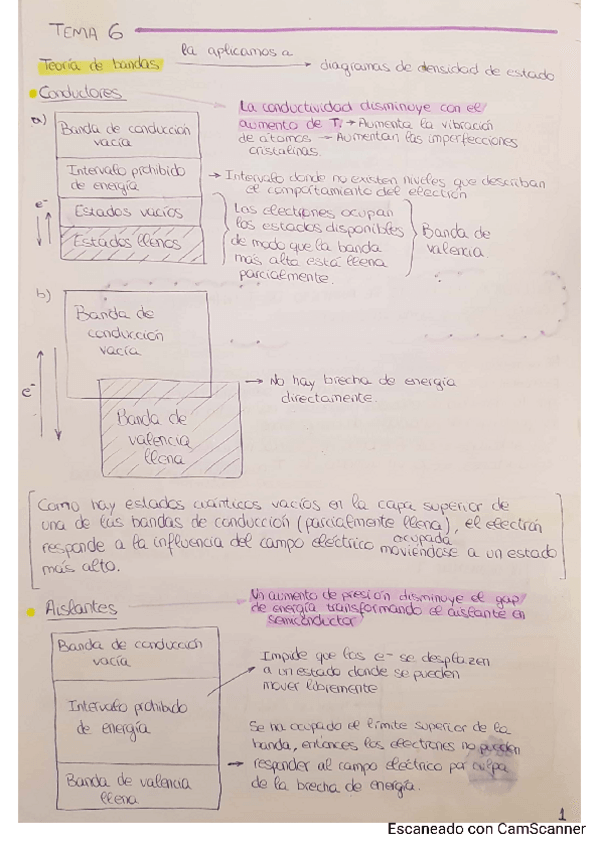 TEMA 6
la aplicamos a
Teoría de bandas
diagramas de densidad de estado
Conductores
a)
Banda de conducción
vacía
Intervalo prohibido
de energía
Estados vacíos
Estados llenos
e-
La conductividad disminuye con el
aumento de T. → Aumenta la vibración
de átomos → Aumentan las imperfecciones
cristalinas.
→ Intervalo donde no existen niveles que describan
el comportamiento del electrón
Los electrones ocupan
los estados disponibles
de modo que la banda
más alta está llena
parcialmente.
Banda de
valencia
b)
Banda de
conducción
vacía
e-
Banda de
valencia
llena
→ No hay brecha de energía
directamente.
Como hay estados cuánticos vacíos en la capa superior de
una de las bandas de conducción (parcialmente llena), el electrón
responde a la influencia del campo eléctrico moviéndose a un estado
ocupada
más alto.
Aislantes
Un aumento de presión disminuye el gap
de energía transformando el aislante en
semiconductor
Banda de conducción
vacía
Intervalo prohibido
de energía
Banda de valencia
llena
Impide que los e- se desplazen
a un estado donde se pueden
mover libremente
Se ha ocupado el límite superior de la
banda, entonces los electrones no pueden
→ responder al campo eléctrico por culpa
de la brecha de energía.
1
Escaneado con CamScanner